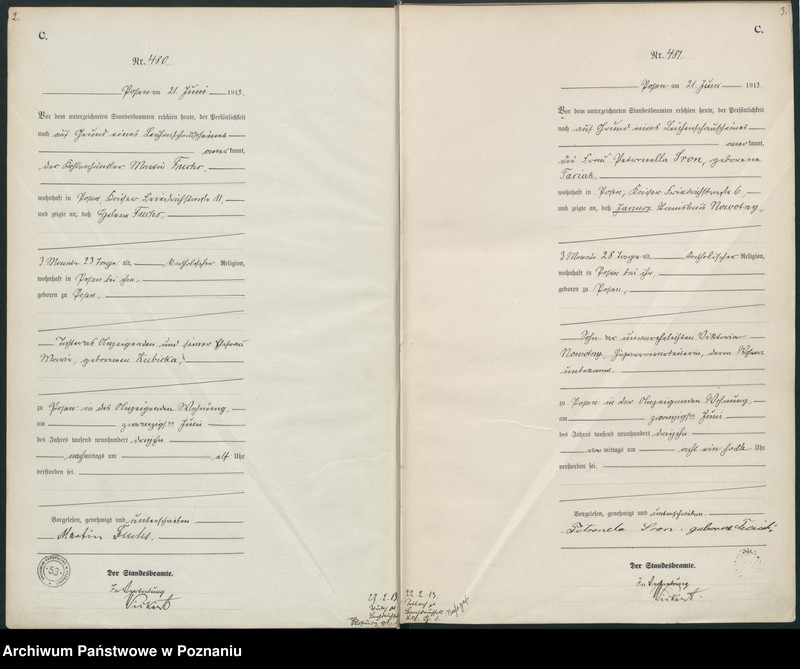 2.
C.
Nr. 480
Posen am 21. Juni 1913.
Vor dem unterzeichneten Standesbeamten erschien heute, der Persönlichkeit
nach auf Grund eines Leichenschauscheines
anerkannt,
der Kohlenhändler Martin Fuchs,
wohnhaft in Posen, Kaiser Friedrichstraße 11,
und zeigte an, daß Helene Fuchs,
3 Monate 23 Tage alt, katholischer Religion,
wohnhaft in Posen bei ihm,
geboren zu Posen,
Tochter des Anzeigenden und seiner Ehefrau
Marie, geborenen Kubicka,
zu Posen in des Anzeigenden Wohnung,
am zwanzigsten Juni
des Jahres tausend neunhundert dreizehn
nachmittags um elf Uhr
verstorben sei.
Vorgelesen, genehmigt und unterschrieben
Martin Fuchs.
Der Standesbeamte.
In Vertretung
53
3.
C.
Nr. 481
Posen am 21. Juni 1913
Vor dem unterzeichneten Standesbeamten erschien heute, der Persönlichkeit
nach auf Grund eines Leichenschauscheines
anerkannt,
die Frau Petronella Sron, geborene
Taciak,
wohnhaft in Posen, Kaiser Friedrichstraße 6,
und zeigte an, daß Stanislaus Nowotny,
3 Monate 28 Tage alt, katholischer Religion,
wohnhaft in Posen bei ihr,
geboren zu Posen,
Sohn der unverehelichten Viktoria
Nowotny, deren Wohnort
unbekannt
zu Posen in der Anzeigenden Wohnung,
am zwanzigsten Juni
des Jahres tausend neunhundert dreizehn
mittags um acht ein halb Uhr
verstorben sei.
Vorgelesen, genehmigt und unterschrieben
Petronela Sron geborene Taciak
Der Standesbeamte.
In Vertretung
Archiwum Państwowe w Poznaniu